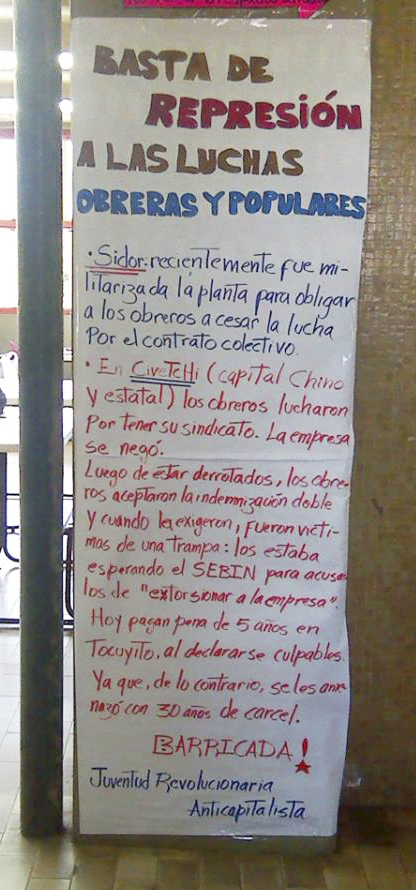 BASTA DE
REPRESIÓN
A LAS LUCHAS
OBRERAS Y POPULARES
· Sidor: recientemente fue mi-
litarizada la planta para obligar
a los obreros a cesar la lucha
Por el contrato colectivo.
· En CiveTCHi (capital Chino
y estatal) los obreros lucharon
Por Tener su sindicato. La empresa
se negó.
Luego de estar derrotados, los obre-
ros aceptaron la indemnización doble
y cuando la exigeron, fueron victi-
mas de una trampa: los estaba
esperando el SEBIN para acusa
los de "extorsionar a la empresa".
Hoy pagan pena de 5 años en
Tocuyito, al declararse culpables.
Ya que, de lo contrario, se les ame
nazó con 30 años de carcel.
BARRICADA!
Juventud Revolucionaria
Anticapitalista